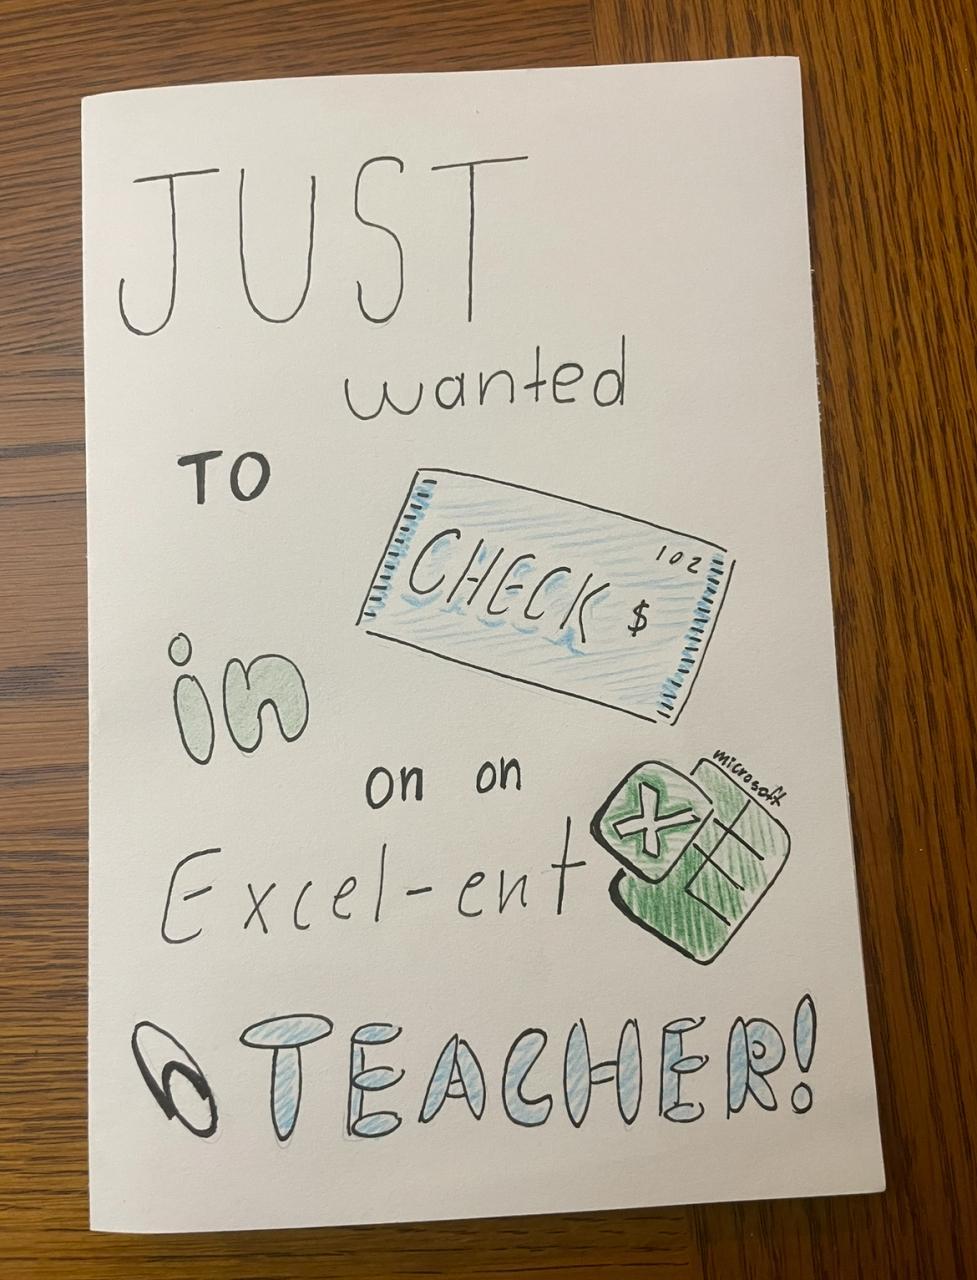 JUST
wanted
TO
CHECK $ 102
in
on on
microsoft
X
Excel-ent
6 TEACHER!